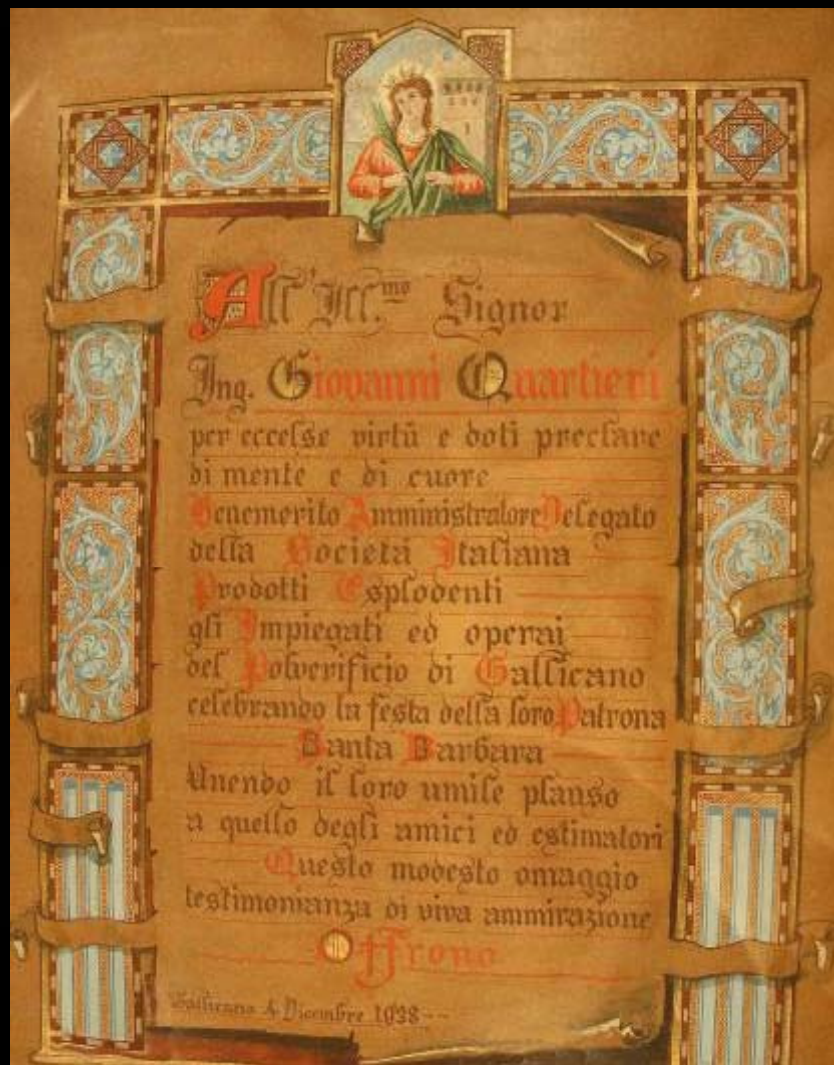 All'Ill.mo Signor
Ing. Giovanni Quartieri
per eccelse virtù e doti preclare
di mente e di cuore
Benemerito Amministratore Delegato
della Società Italiana
Prodotti Esplodenti
gli Impiegati ed operai
del Polverificio di Gallicano
celebrando la festa della loro Patrona
Santa Barbara
Unendo il loro umile plauso
a quello degli amici ed estimatori
Questo modesto omaggio
testimonianza di viva ammirazione
Offrono
Gallicano 4 Dicembre 1938 --